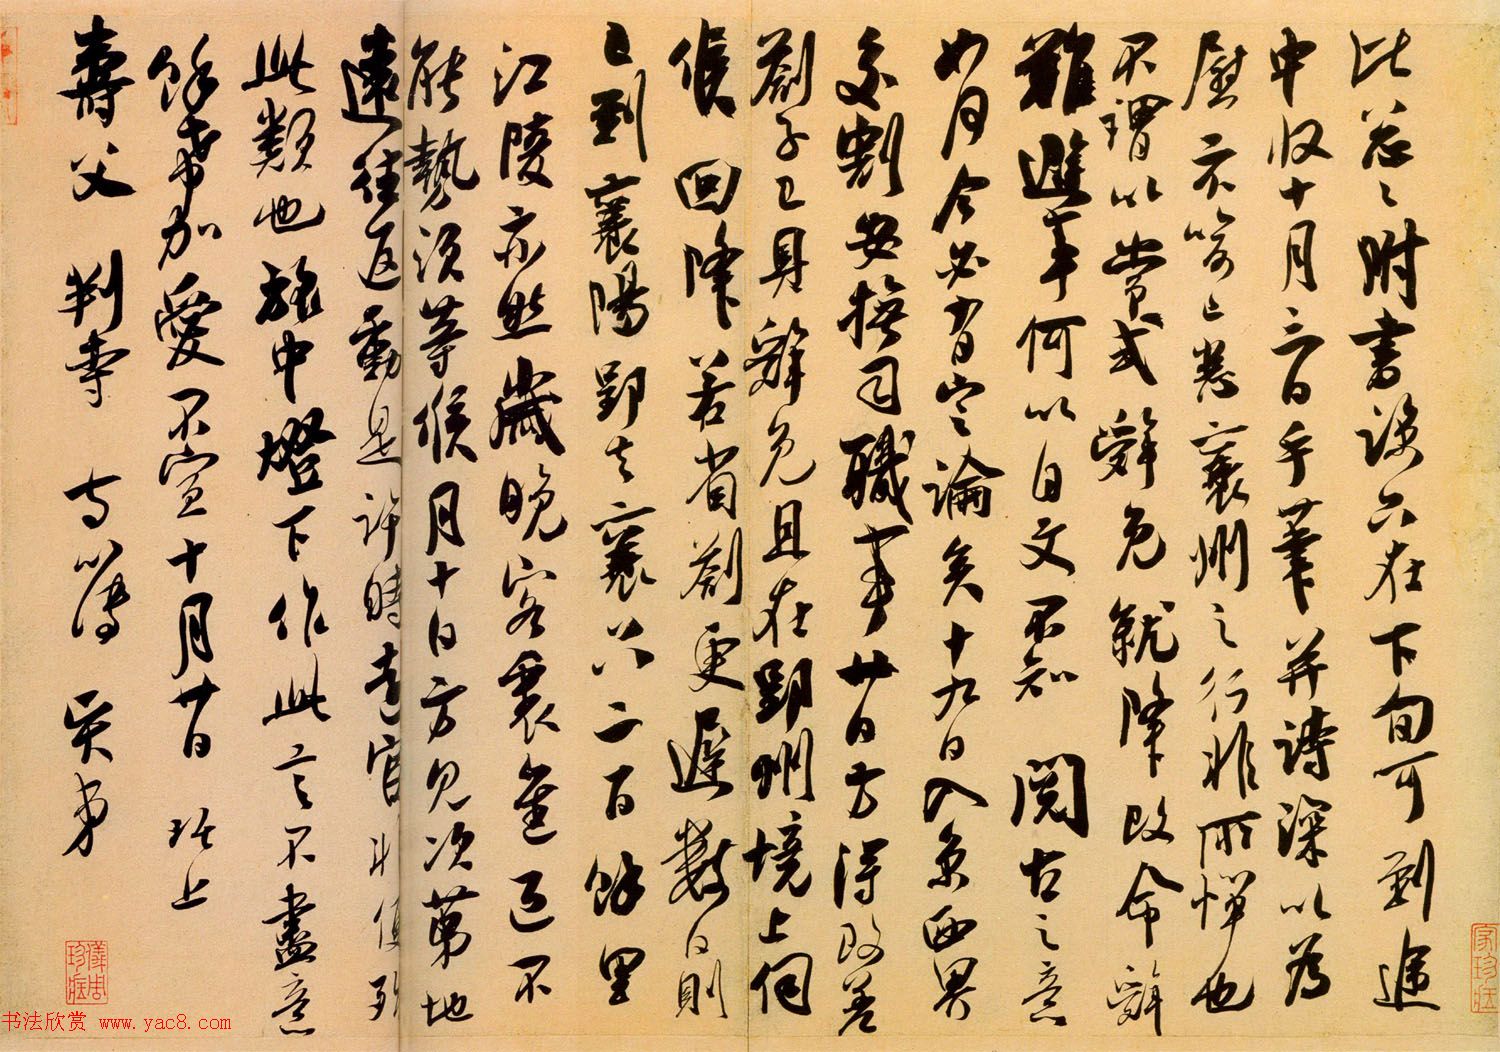 比忽忽附書深六在下旬可到途
中收十月三日手筆并詩深以為
慰不審已悉襄州之行非所憚也
不謂以賞武辭免就降改命辭
難避事何以自文不知 閱古之意
如何今必有定論矣十九日入京西界
交割安撫司職事廿日方得改差
劄子已具辭免且在郢州境上伺
候 回降若省劄更遲數日則
已到襄陽郢去襄六二百餘里
江陵亦然歲晚客裏進退不
能勢須等候月十日方見次第地
遠往返動是許時遠官
此類也旅中燈下作此言不盡意
餘希加愛不宣十月廿日 琚上
壽父 判寺 寺簿 賢弟
書法欣賞 www.yac8.com